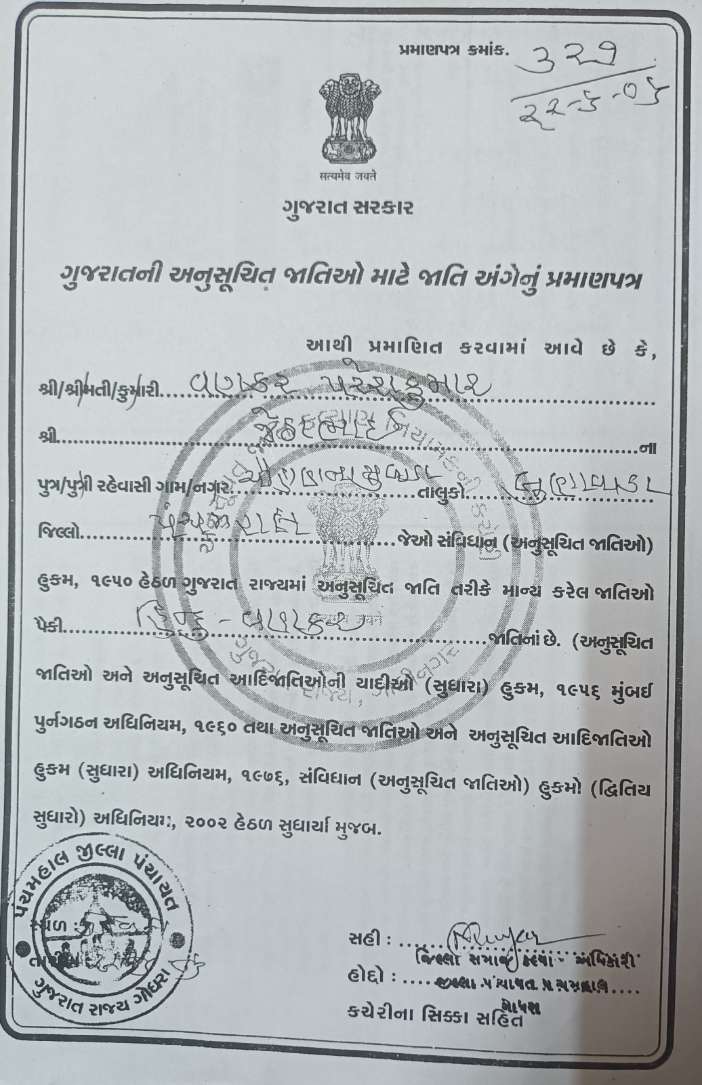 પ્રમાણપત્ર ક્રમાંક. ૩૨૭
૨૨-૬-૦૬
सत्यमेव जयते
ગુજરાત સરકાર
ગુજરાતની અનુસૂચિત જાતિઓ માટે જાતિ અંગેનું પ્રમાણપત્ર
આથી પ્રમાણિત કરવામાં આવે છે કે,
શ્રી/શ્રીમતી/કુમારી. વણકર પરેશકુમાર
શ્રી. જેઠાભાઈ ના
પુત્ર/પુત્રી રહેવાસી ગામ/નગર. તાલુકો. લુણાવાડા
જિલ્લો. પંચમહાલ જેઓ સંવિધાન (અનુસૂચિત જાતિઓ)
હુકમ, ૧૯૫૦ હેઠળ ગુજરાત રાજ્યમાં અનુસૂચિત જાતિ તરીકે માન્ય કરેલ જાતિઓ
પેકી. હિન્દુ - વણકર જાતિનાં છે. (અનુસૂચિત
જાતિઓ અને અનુસૂચિત આદિજાતિઓની યાદીઓ (સુધારા) હુકમ, ૧૯૫૬ મુંબઈ
પુર્નગઠન અધિનિયમ, ૧૯૬૦ તથા અનુસૂચિત જાતિઓ અને અનુસૂચિત આદિજાતિઓ
હુકમ (સુધારા) અધિનિયમ, ૧૯૭૬, સંવિધાન (અનુસૂચિત જાતિઓ) હુકમો (દ્વિતિય
સુધારો) અધિનિયમ, ૨૦૦૨ હેઠળ સુધાર્યા મુજબ.
પંચમહાલ જીલ્લા પંચાયત
ગુજરાત રાજ્ય ગોધરા
સ્થળ :
તારીખ
સહી :
જિલ્લા સમાજ કલ્યાણ અધિકારી
હોદ્દો : જીલ્લા પંચાયત પંચમહાલ
ગોધરા
કચેરીના સિક્કા સહિત